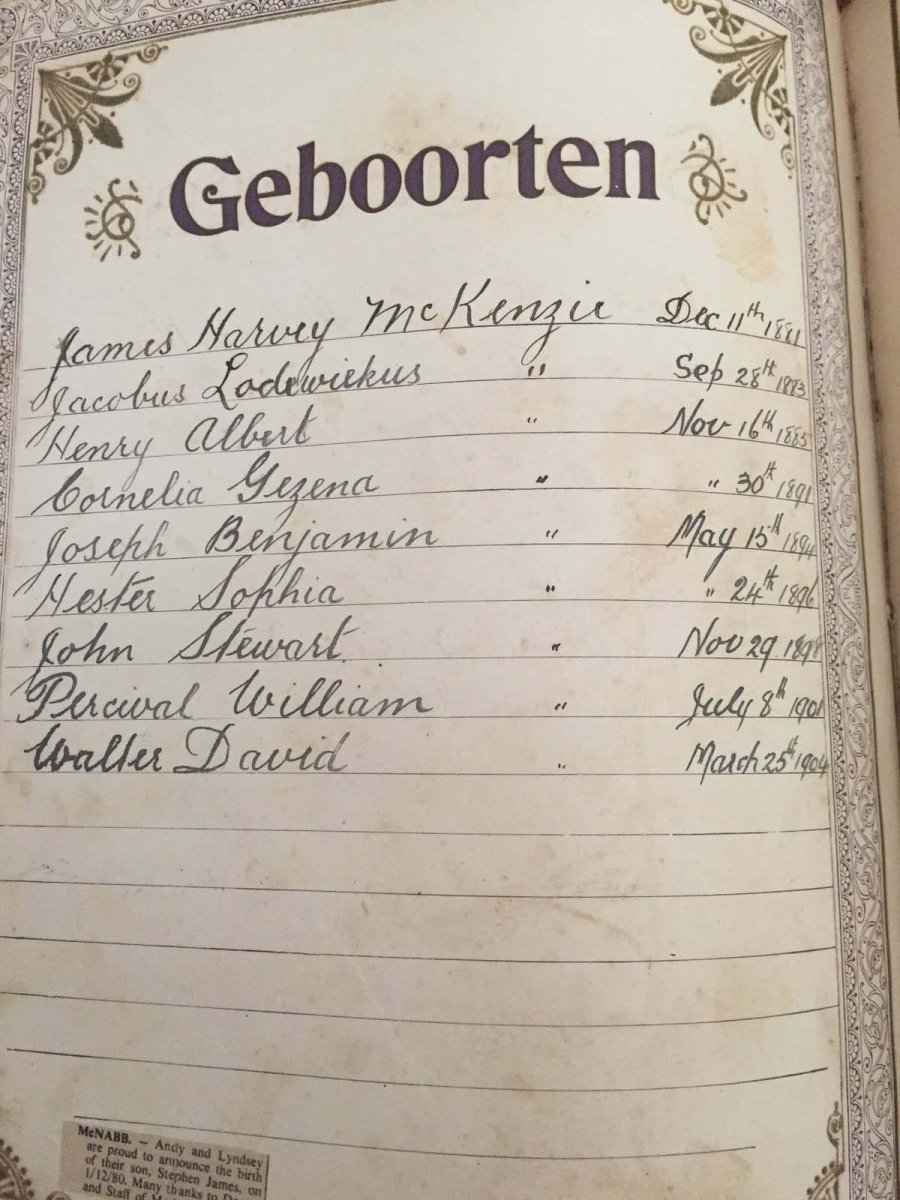 Geboorten
James Harvey McKenzie Dec 11th 1881
Jacobus Lodewickus " Sep 28th 1883
Henry Albert " Nov 16th 1885
Cornelia Gezena " " 30th 1891
Joseph Benjamin " May 15th 1894
Hester Sophia " " 24th 1896
John Stewart " Nov 29 1898
Percival William " July 8th 1901
Walter David " March 25th 1904
McNABB. — Andy and Lyndsey
are proud to announce the birth
of their son, Stephen James, on
1/12/80. Many thanks to
and Staff of